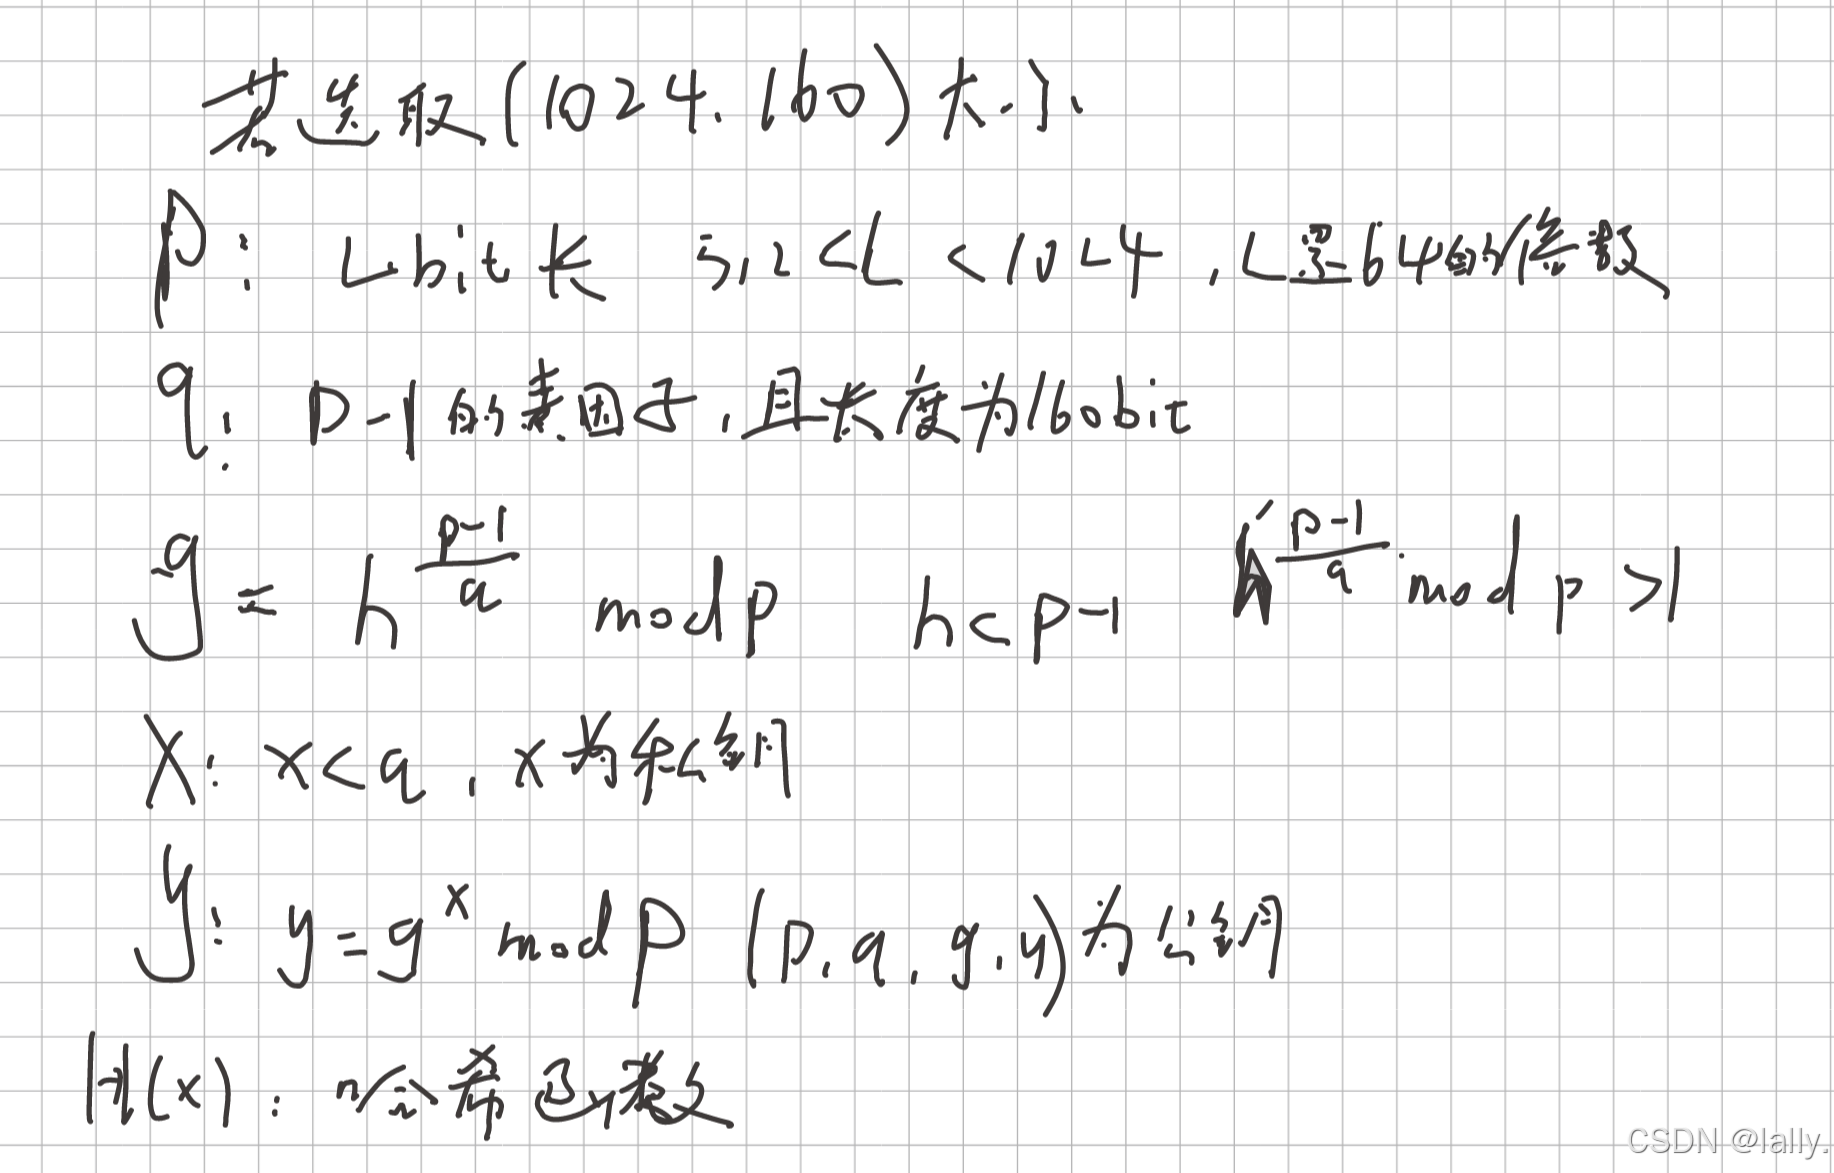 若选取(1024.160)大小
p: L bit长 512<L<1024,L是64的倍数
q: p-1的素因子,且长度为160bit
g = h^{\frac{p-1}{q}} mod p h<p-1 h^{\frac{p-1}{q}} mod p >1
x: x<q, x为私钥
y: y=g^x mod p (p,q,g,y)为公钥
H(x): 哈希函数
CSDN @lally.